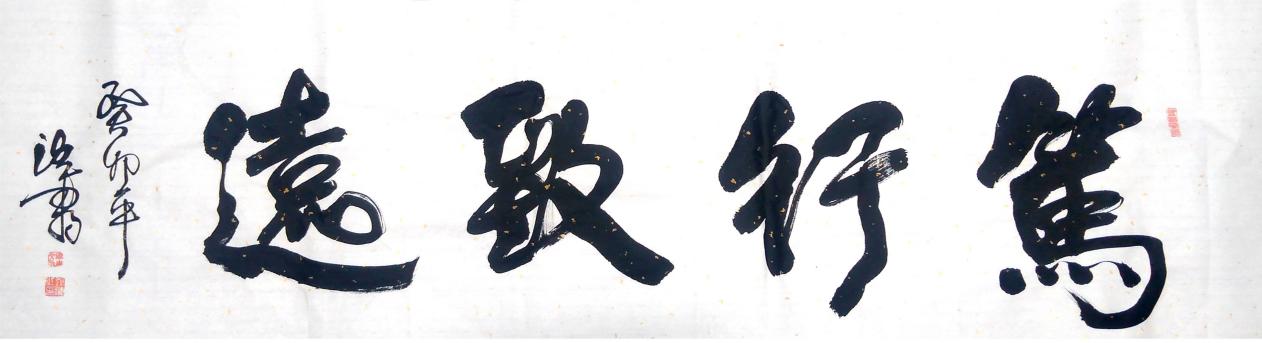 篤行致遠
癸卯年